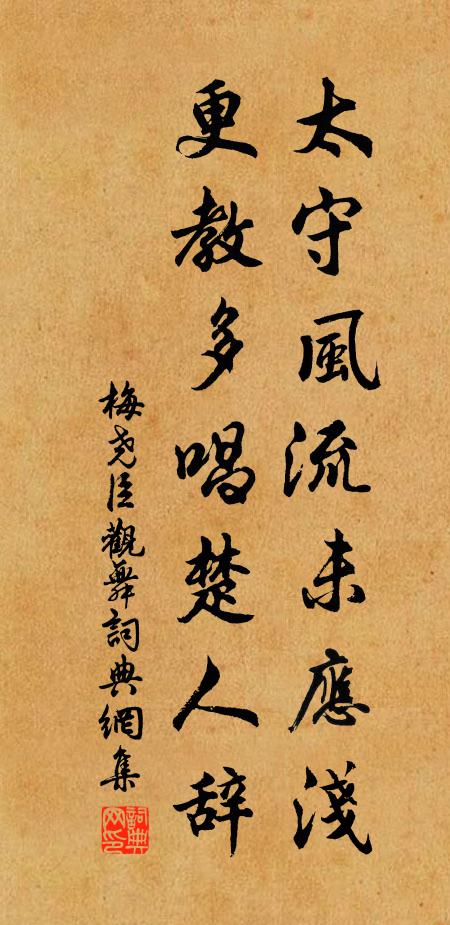 太守風流未應淺
更教多唱楚人辞
梅尧臣觀舞詞典網集
詞典網印